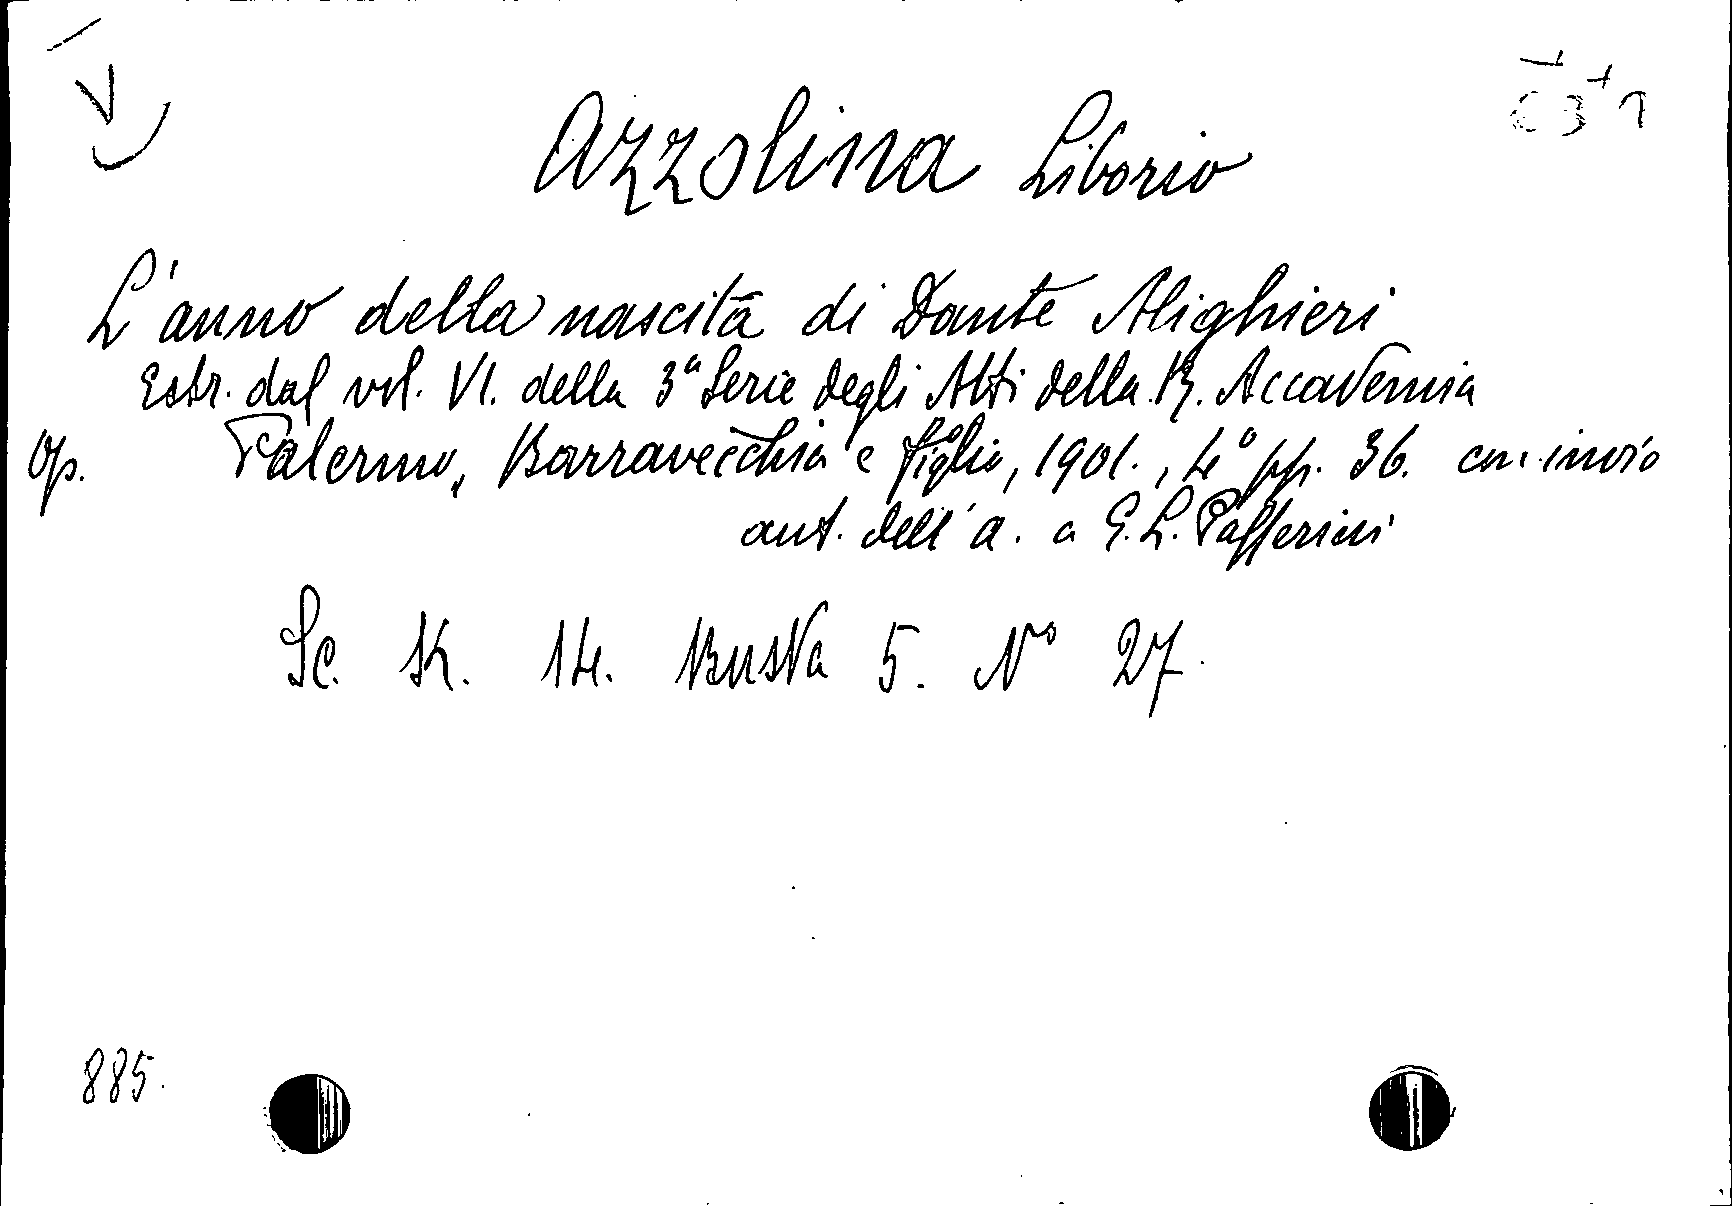 Azzolina Liborio
L'anno della nascita di Dante Alighieri
Estr. dal vol. VI. della 3ª Serie degli Atti della R. Accademia
Op. Palermo, Barravecchia e figlio, 1901., 4° pp. 36. con invio
aut. dell'a. a G. L. Passerini
Sc. K. 14. Busta 5. N° 27.
885.